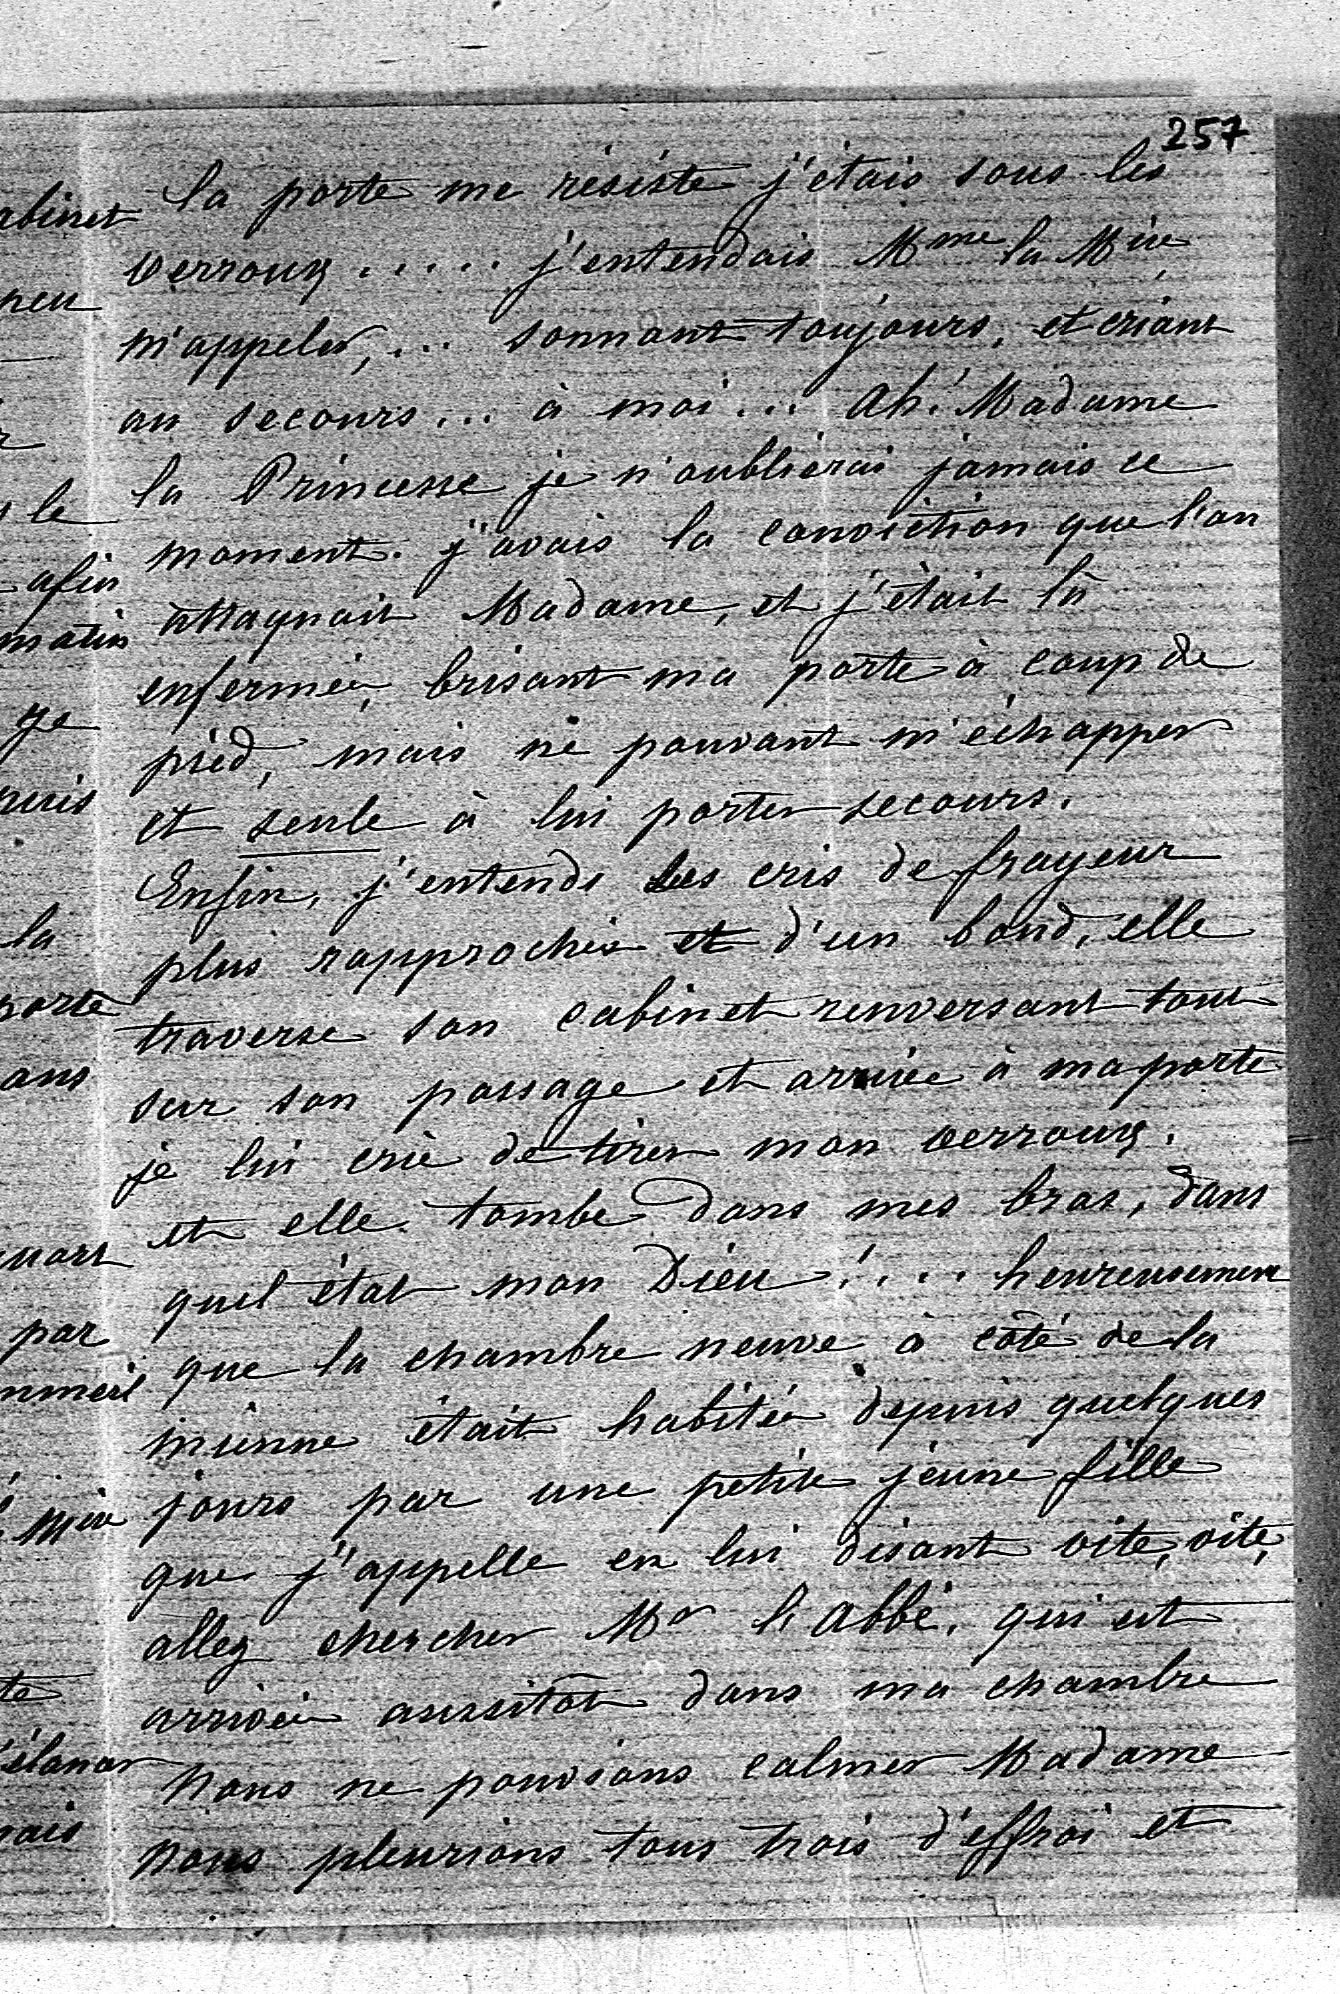 257
la porte me résiste j'étais sous les
verrouy ..... j'entendais Mme la Mère
m'appeler, ... sonnant toujours, et criant
au secours ... à moi ... Ah! Madame
la Princesse je n'oublierai jamais ce
moment. j'avais la conviction que l'on
attaquait Madame, et j'était là
enfermée, brisant ma porte à coup de
pied, mais ne pouvant m'échapper
et seule à lui porter secours.
Enfin, j'entends les cris de frayeur
plus rapprochés et d'un bond, elle
traverse son cabinet renversant tout
sur son passage et arrivée à ma porte
je lui crie de tirer mon verrouy.
et elle tombe dans mes bras, dans
quel état mon Dieu !.... heureusement
que la chambre neuve à côté de la
mienne était habitée depuis quelques
jours par une petite jeune fille
que j'appelle en lui disant vite, vite,
allez chercher Mr l'Abbé. qui est
arrivée aussitôt dans ma chambre
Nous ne pouvions calmer Madame
Nous pleurions tous trois d'effroi et